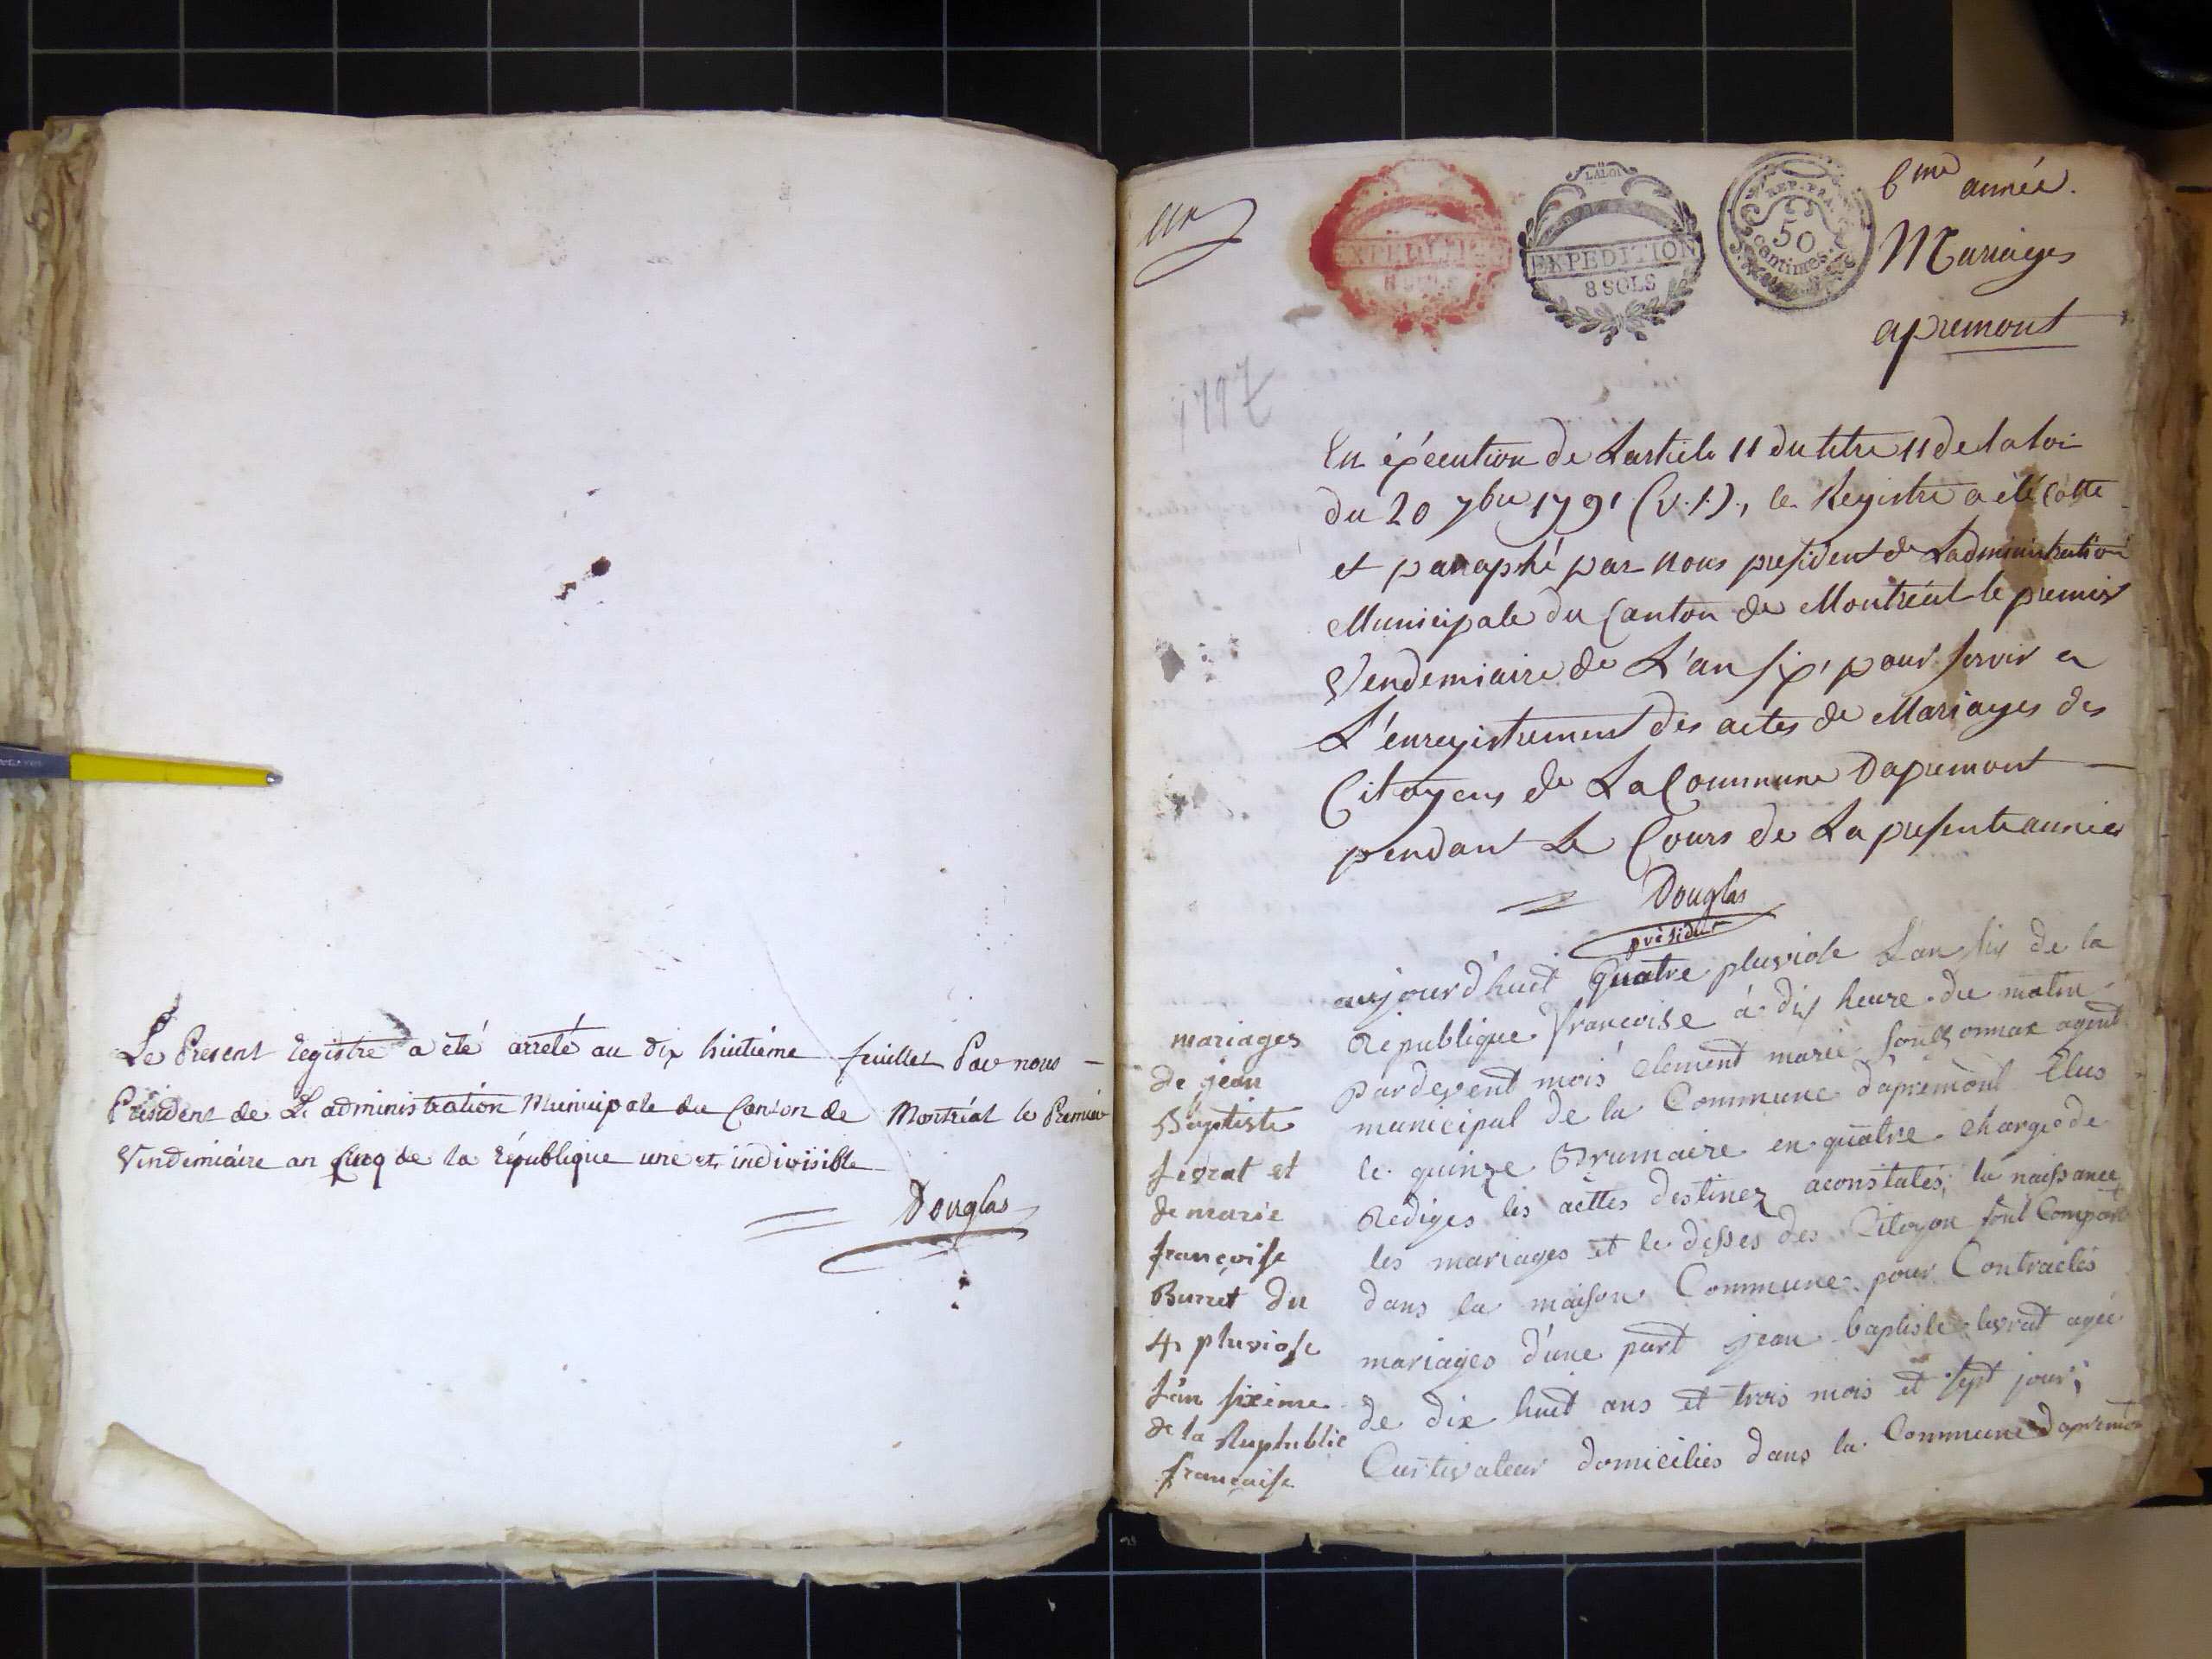 Le Present registre a été arreté au dix huitieme feuillet Par nous
President de L'administration Municipale du Canton de Montréal le Premier
Vendemiaire an cinq de la république une et indivisible
Douglas
un
EXPEDITION
8 SOLS
LA LOI
EXPEDITION
8 SOLS
REP. FRA.
50
centimes
6me année.
Mariages
apremont
1797
En éxécution de L'article 11 du titre 11 de la loi
du 20 7bre 1791 (v.s.), le Registre a été cotté
et paraphé par nous president de Ladministration
Municipale du Canton de Montréal le premier
Vendemiaire de L'an six, pour servir a
L'enregistrement des actes de Mariages des
Citoyens de La Commune Dapremont
pendant Le Cours de La presente année
Douglas
président
mariages
de jean
Baptiste
levrat et
de marie
françoise
Burret du
4 pluviose
l'an sixieme
de la Republic
française
aujourd'huit quatre pluviose L'an six de la
République françoise à dix heure du matin
pardevent mois Clement marie sonthonnax agent
municipal de la Commune d'apremont Elus
le quinze Brumaire en quatre charge de
Rediges les acttes destinez aconstatés la naissance
les mariages et le desses des Citoyon sont Comparu
dans la maison Commune pour Contractés
mariages d'une part jean baptiste levrat agée
de dix huit ans et trois mois et sept jour;
Curtivateur domiciliés dans la Commune dapremon